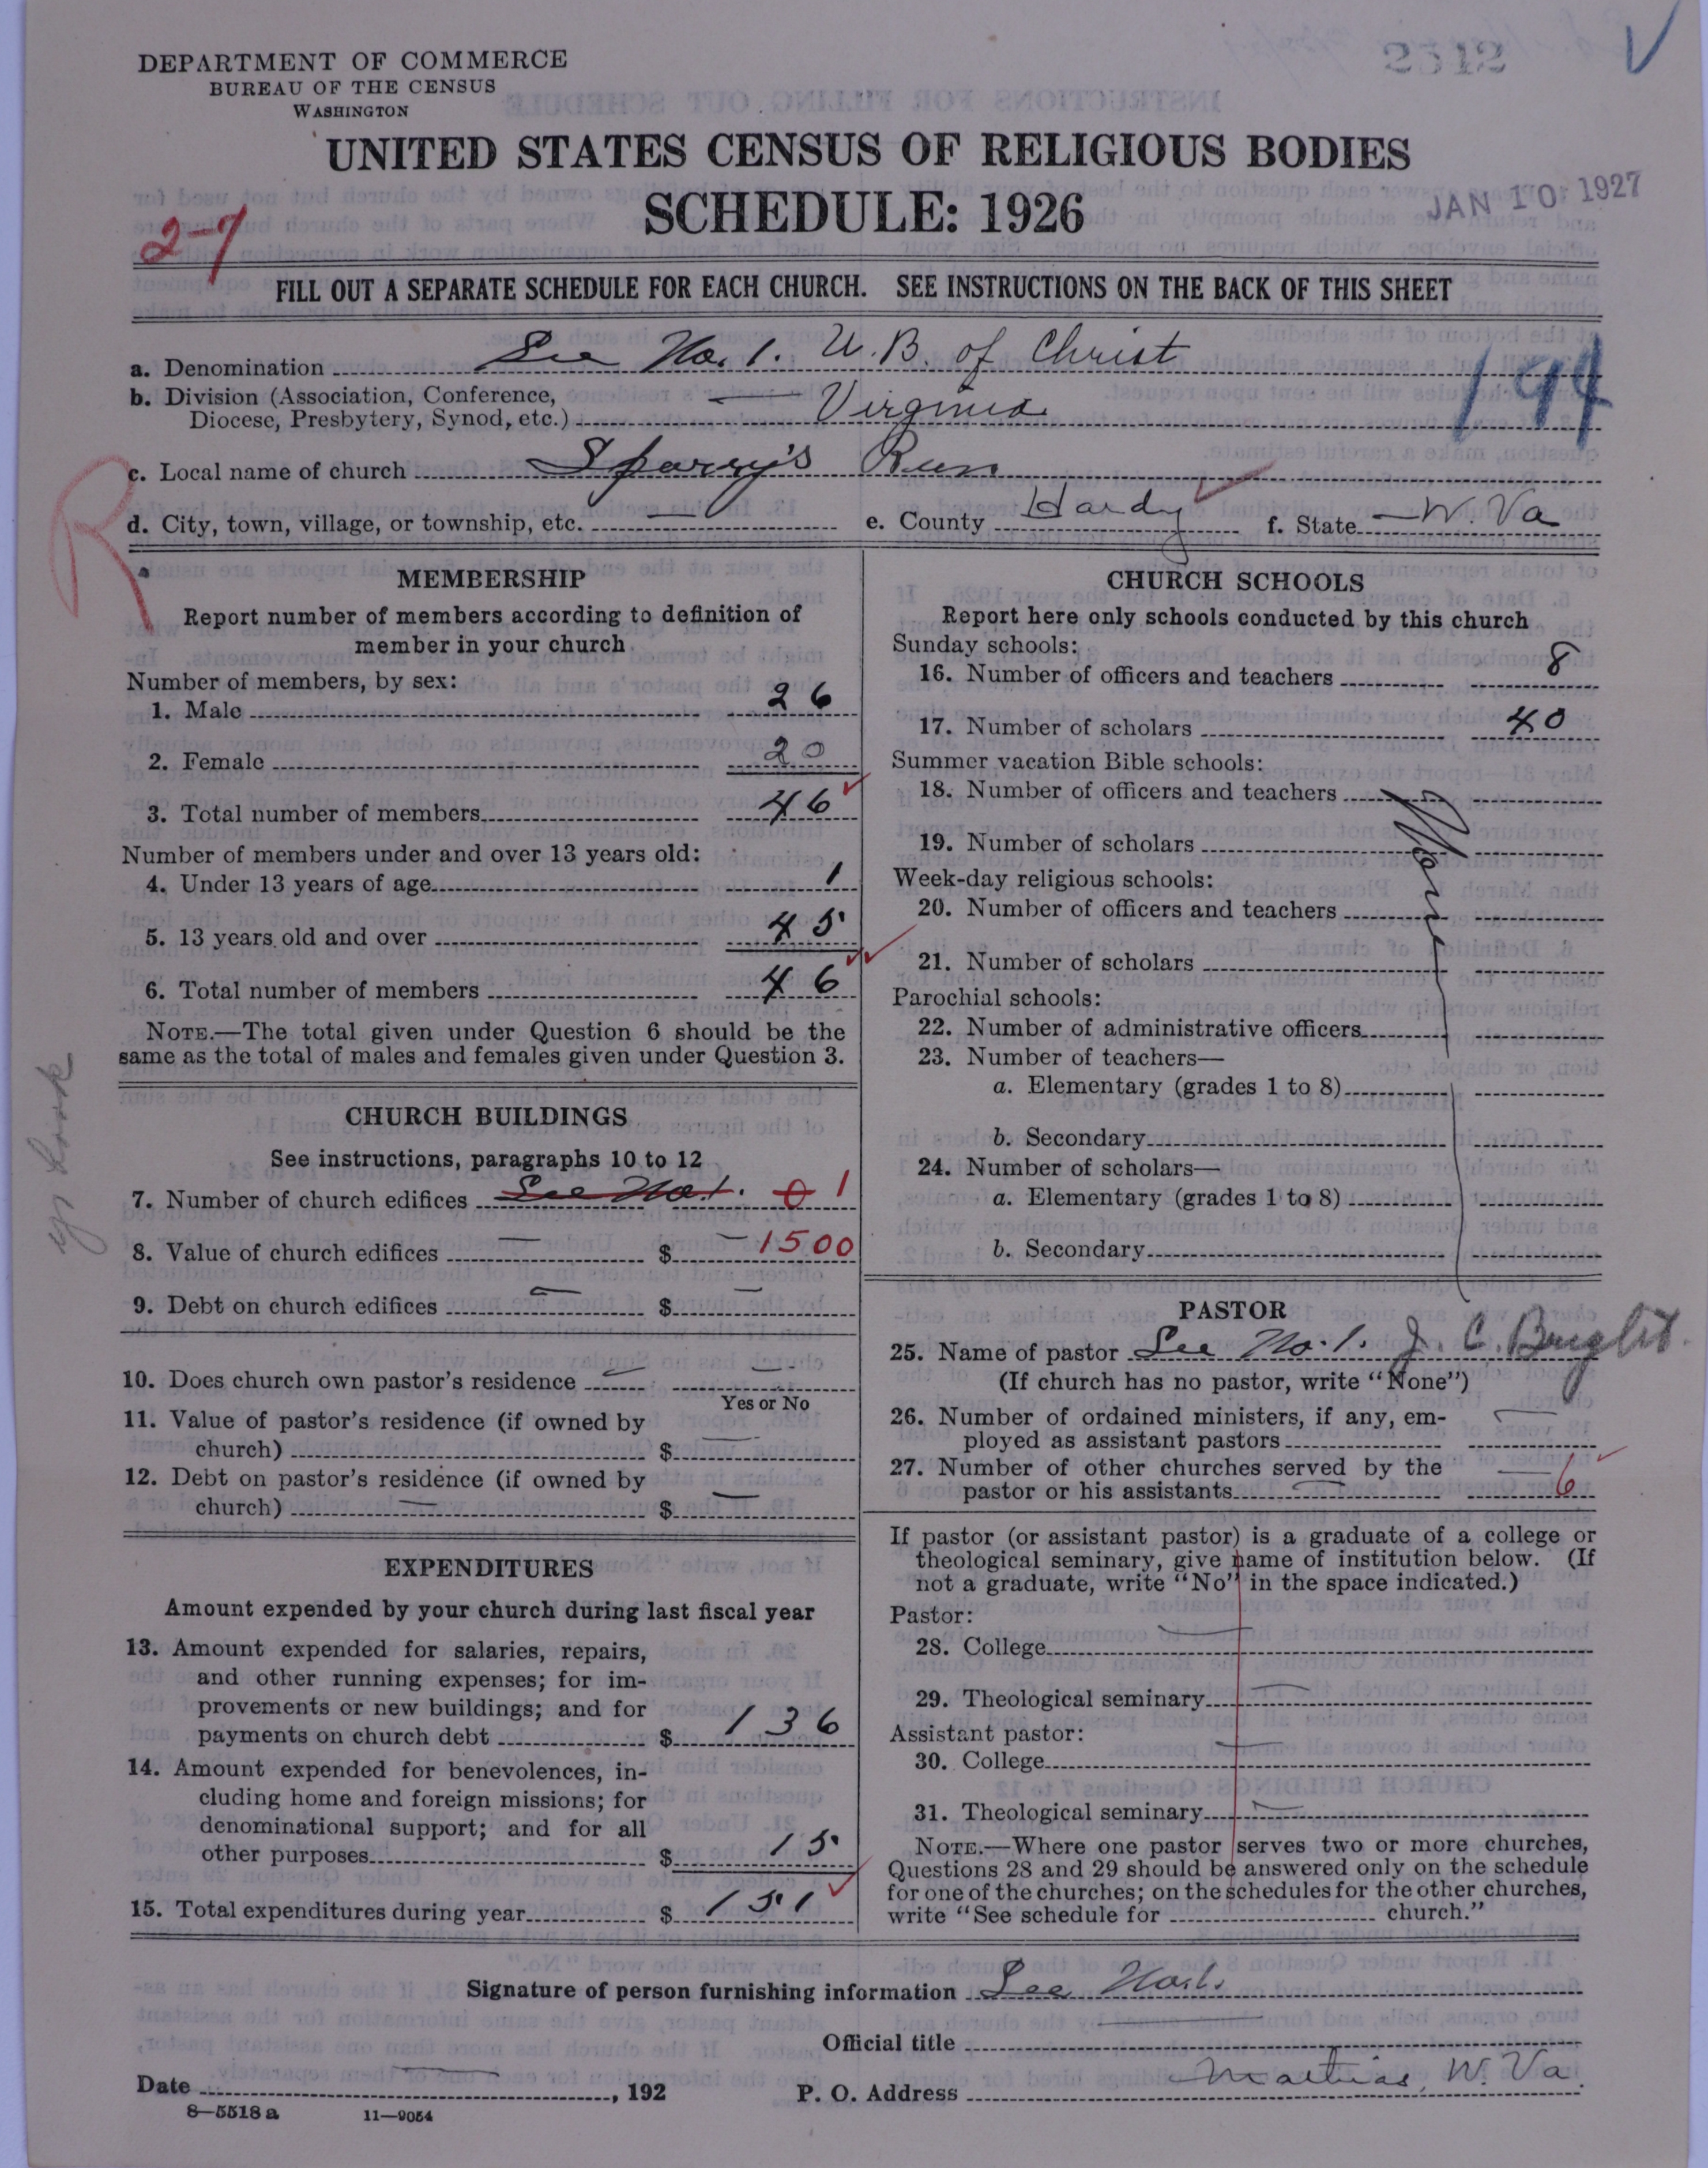 DEPARTMENT OF COMMERCE
BUREAU OF THE CENSUS
WASHINGTON
2512
UNITED STATES CENSUS OF RELIGIOUS BODIES
SCHEDULE: 1926
JAN 10 1927
27
FILL OUT A SEPARATE SCHEDULE FOR EACH CHURCH. SEE INSTRUCTIONS ON THE BACK OF THIS SHEET
a. Denomination See No. 1. U.B. of Christ
194
b. Division (Association, Conference,
Diocese, Presbytery, Synod, etc.) Virginia
R
c. Local name of church Sperry's Run
d. City, town, village, or township, etc. — e. County Hardy f. State W. Va
MEMBERSHIP
Report number of members according to definition of
member in your church
Number of members, by sex:
1. Male 26
2. Female 20
3. Total number of members 46
Number of members under and over 13 years old:
4. Under 13 years of age 1
5. 13 years old and over 45
6. Total number of members 46
NOTE.—The total given under Question 6 should be the
same as the total of males and females given under Question 3.
CHURCH BUILDINGS
See instructions, paragraphs 10 to 12
7. Number of church edifices See No. 1. 0 1
8. Value of church edifices — $ — 1500
9. Debt on church edifices — $ —
10. Does church own pastor's residence — —
Yes or No
11. Value of pastor's residence (if owned by
church) $ —
12. Debt on pastor's residence (if owned by
church) — $ —
EXPENDITURES
Amount expended by your church during last fiscal year
13. Amount expended for salaries, repairs,
and other running expenses; for im-
provements or new buildings; and for
payments on church debt $ 136
14. Amount expended for benevolences, in-
cluding home and foreign missions; for
denominational support; and for all
other purposes $ 15
15. Total expenditures during year $ 151
CHURCH SCHOOLS
Report here only schools conducted by this church
Sunday schools:
16. Number of officers and teachers 8
17. Number of scholars 40
Summer vacation Bible schools:
18. Number of officers and teachers
19. Number of scholars
None
Week-day religious schools:
20. Number of officers and teachers
21. Number of scholars
Parochial schools:
22. Number of administrative officers
23. Number of teachers—
a. Elementary (grades 1 to 8)
b. Secondary
24. Number of scholars—
a. Elementary (grades 1 to 8)
b. Secondary
PASTOR
25. Name of pastor See No. 1. J. C. Bright
(If church has no pastor, write "None")
26. Number of ordained ministers, if any, em-
ployed as assistant pastors —
27. Number of other churches served by the
pastor or his assistants — 6
If pastor (or assistant pastor) is a graduate of a college or
theological seminary, give name of institution below. (If
not a graduate, write "No" in the space indicated.)
Pastor:
28. College —
29. Theological seminary —
Assistant pastor:
30. College —
31. Theological seminary —
NOTE.—Where one pastor serves two or more churches,
Questions 28 and 29 should be answered only on the schedule
for one of the churches; on the schedules for the other churches,
write "See schedule for church."
Signature of person furnishing information See No. 1.
Official title —
Date —, 192 P. O. Address Mathias, W. Va.
8—5518 a 11—9054